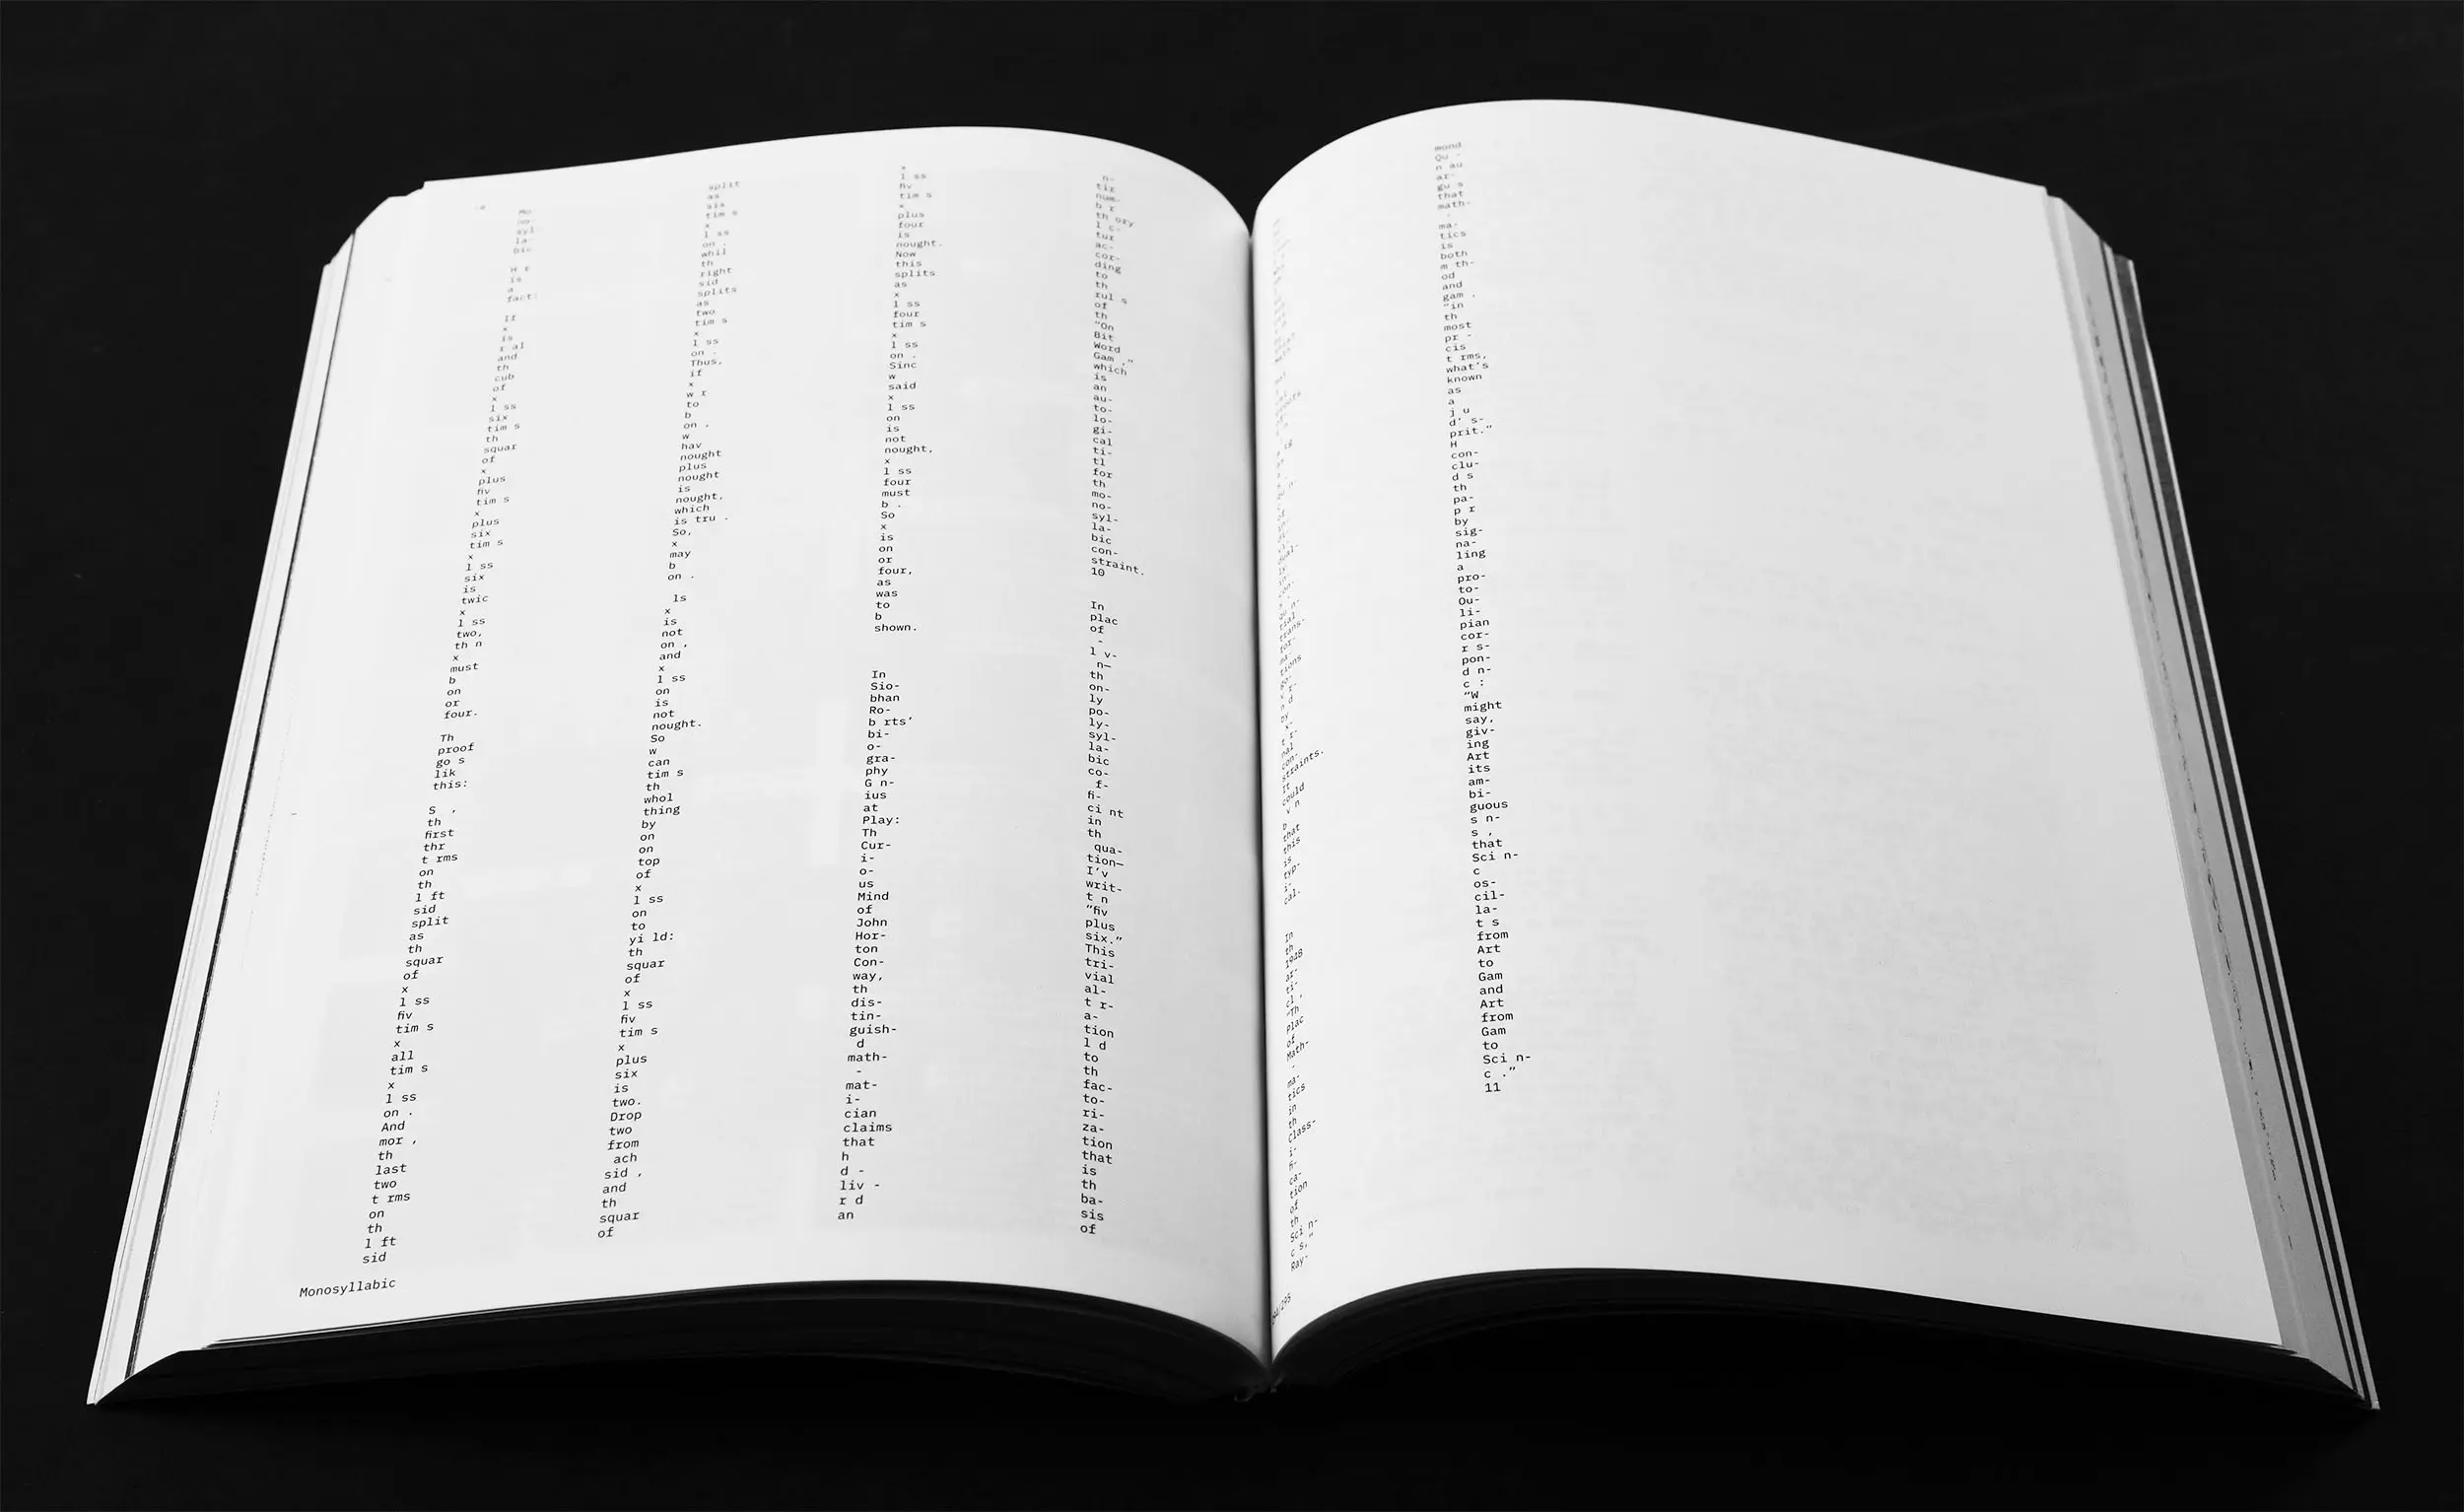 Mo-
no-
syl-
la-
bic
H r
is
a
fact:
If
x
is
r al
and
th
cub
of
x
l ss
six
tim s
th
squar
of
x
plus
fiv
tim s
x
plus
six
tim s
x
l ss
six
is
twic
x
l ss
two,
th n
x
must
b
on
or
four.
Th
proof
go s
lik
this:
S  ,
th
first
thr
t rms
on
th
l ft
sid
split
as
th
squar
of
x
l ss
fiv
tim s
x
all
tim s
x
l ss
on .
And
mor ,
th
last
two
t rms
on
th
l ft
sid
split
as
six
tim s
x
l ss
on .
whil
th
right
sid
splits
as
two
tim s
x
l ss
on .
Thus,
if
x
w r
to
b
on .
w
hav
nought
plus
nought
is
nought,
which
is tru .
So,
x
may
b
on .
 ls
x
is
not
on ,
and
x
l ss
on
is
not
nought.
So
w
can
tim s
th
whol
thing
by
on
on
top
of
x
l ss
on
to
yi ld:
th
squar
of
x
l ss
fiv
tim s
x
plus
six
is
two.
Drop
two
from
 ach
sid ,
and
th
squar
of
x
l ss
fiv
tim s
x
plus
four
is
nought.
Now
this
splits
as
x
l ss
four
tim s
x
l ss
on .
Sinc
w
said
x
l ss
on
is
not
nought,
x
l ss
four
must
b .
So
x
is
on
or
four,
as
was
to
b
shown.
In
Sio-
bhan
Ro-
b rts’
bi-
o-
gra-
phy
G n-
ius
at
Play:
Th
Cur-
i-
o-
us
Mind
of
John
Hor-
ton
Con-
way,
th
dis-
tin-
guish-
 d
math-
 -
mat-
i-
cian
claims
that
h
d -
liv -
r d
an
 n-
tir
num-
b r
th ory
l c-
tur
ac-
cor-
ding
to
th
rul s
of
th
“On
Bit
Word
Gam ,”
which
is
an
au-
to-
lo-
gi-
cal
ti-
tl
for
th
mo-
no-
syl-
la-
bic
con-
straint.
10
In
plac
of
 -
l v-
 n—
th
on-
ly
po-
ly-
syl-
la-
bic
co-
 f-
fi-
ci nt
in
th
 qua-
tion—
I’v
writ-
t n
“fiv
plus
six.”
This
tri-
vial
al-
t r-
a-
tion
l d
to
th
fac-
to-
ri-
za-
tion
that
is
th
ba-
sis
of
Monosyllabic
trans-
for-
ma-
tions
by
con-
straints.
It
could
 v n
b
that
this
is
typ-
i-
cal.
In
th
1948
ar-
ti-
cl ,
“Th
Plac
of
Math-
 -
ma-
tics
in
th
Class-
i-
fi-
ca-
tion
of
th
Sci n-
c s,”
Ray-
mond
Qu -
n au
ar-
gu s
that
math-
 -
ma-
tics
is
both
m th-
od
and
gam .
“in
th
most
pr -
cis
t rms,
what’s
known
as
a
j u
d’ s-
prit.”
H
con-
clu-
d s
th
pa-
p r
by
sig-
na-
ling
a
pro-
to-
Ou-
li-
pian
cor-
r s-
pon-
d n-
c :
“W
might
say,
giv-
ing
Art
its
am-
bi-
guous
s n-
s ,
that
Sci n-
c
os-
cil-
la-
t s
from
Art
to
Gam
and
Art
from
Gam
to
Sci n-
c .”
11